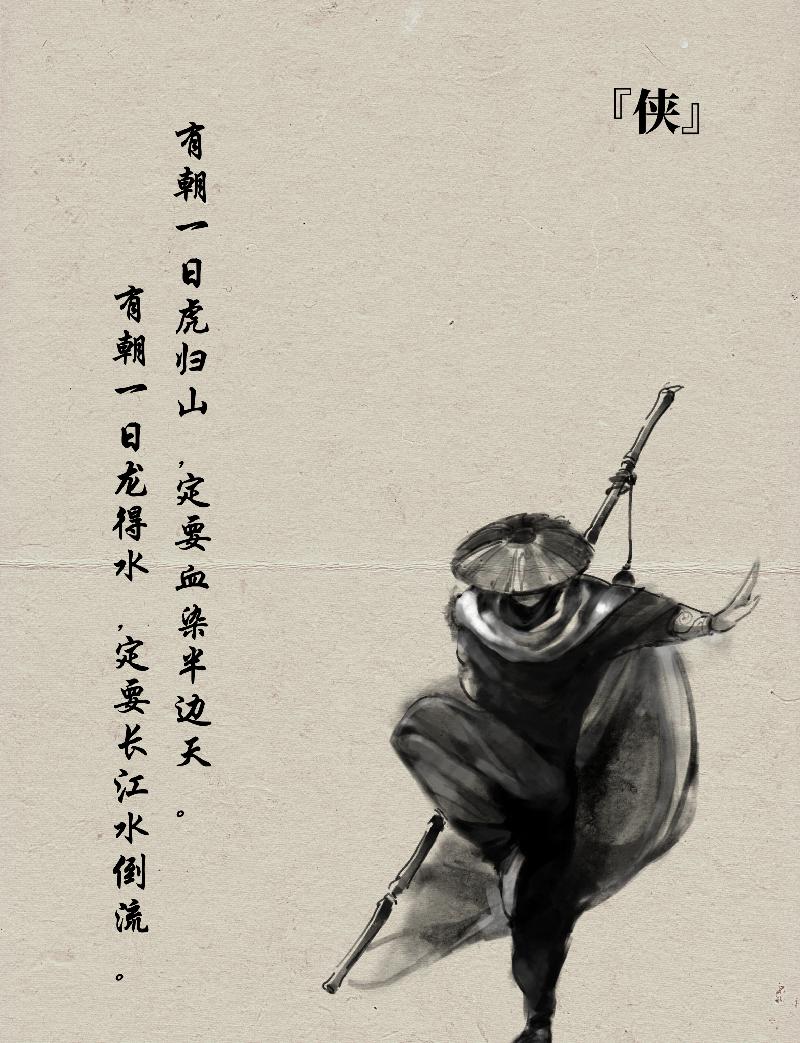 『侠』
有朝一日虎归山，定要血染半边天。
有朝一日龙得水，定要长江水倒流。